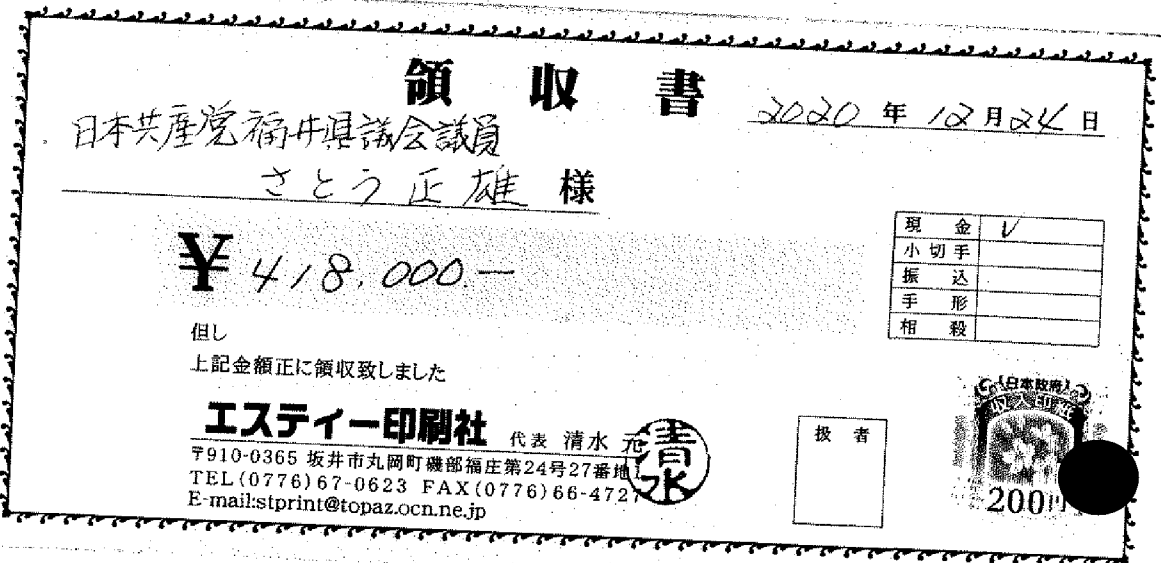 領収書
2020年12月24日
日本共産党福井県議会議員
さとう正雄 様
¥418,000.—
現金 V
小切手
振込
手形
相殺
但し
上記金額正に領収致しました
エスティー印刷社 代表 清水 元
清水
〒910-0365 坂井市丸岡町磯部福庄第24号27番地
TEL(0776)67-0623 FAX(0776)66-4727
E-mail:stprint@topaz.ocn.ne.jp
扱者
日本政府
収入印紙
200円